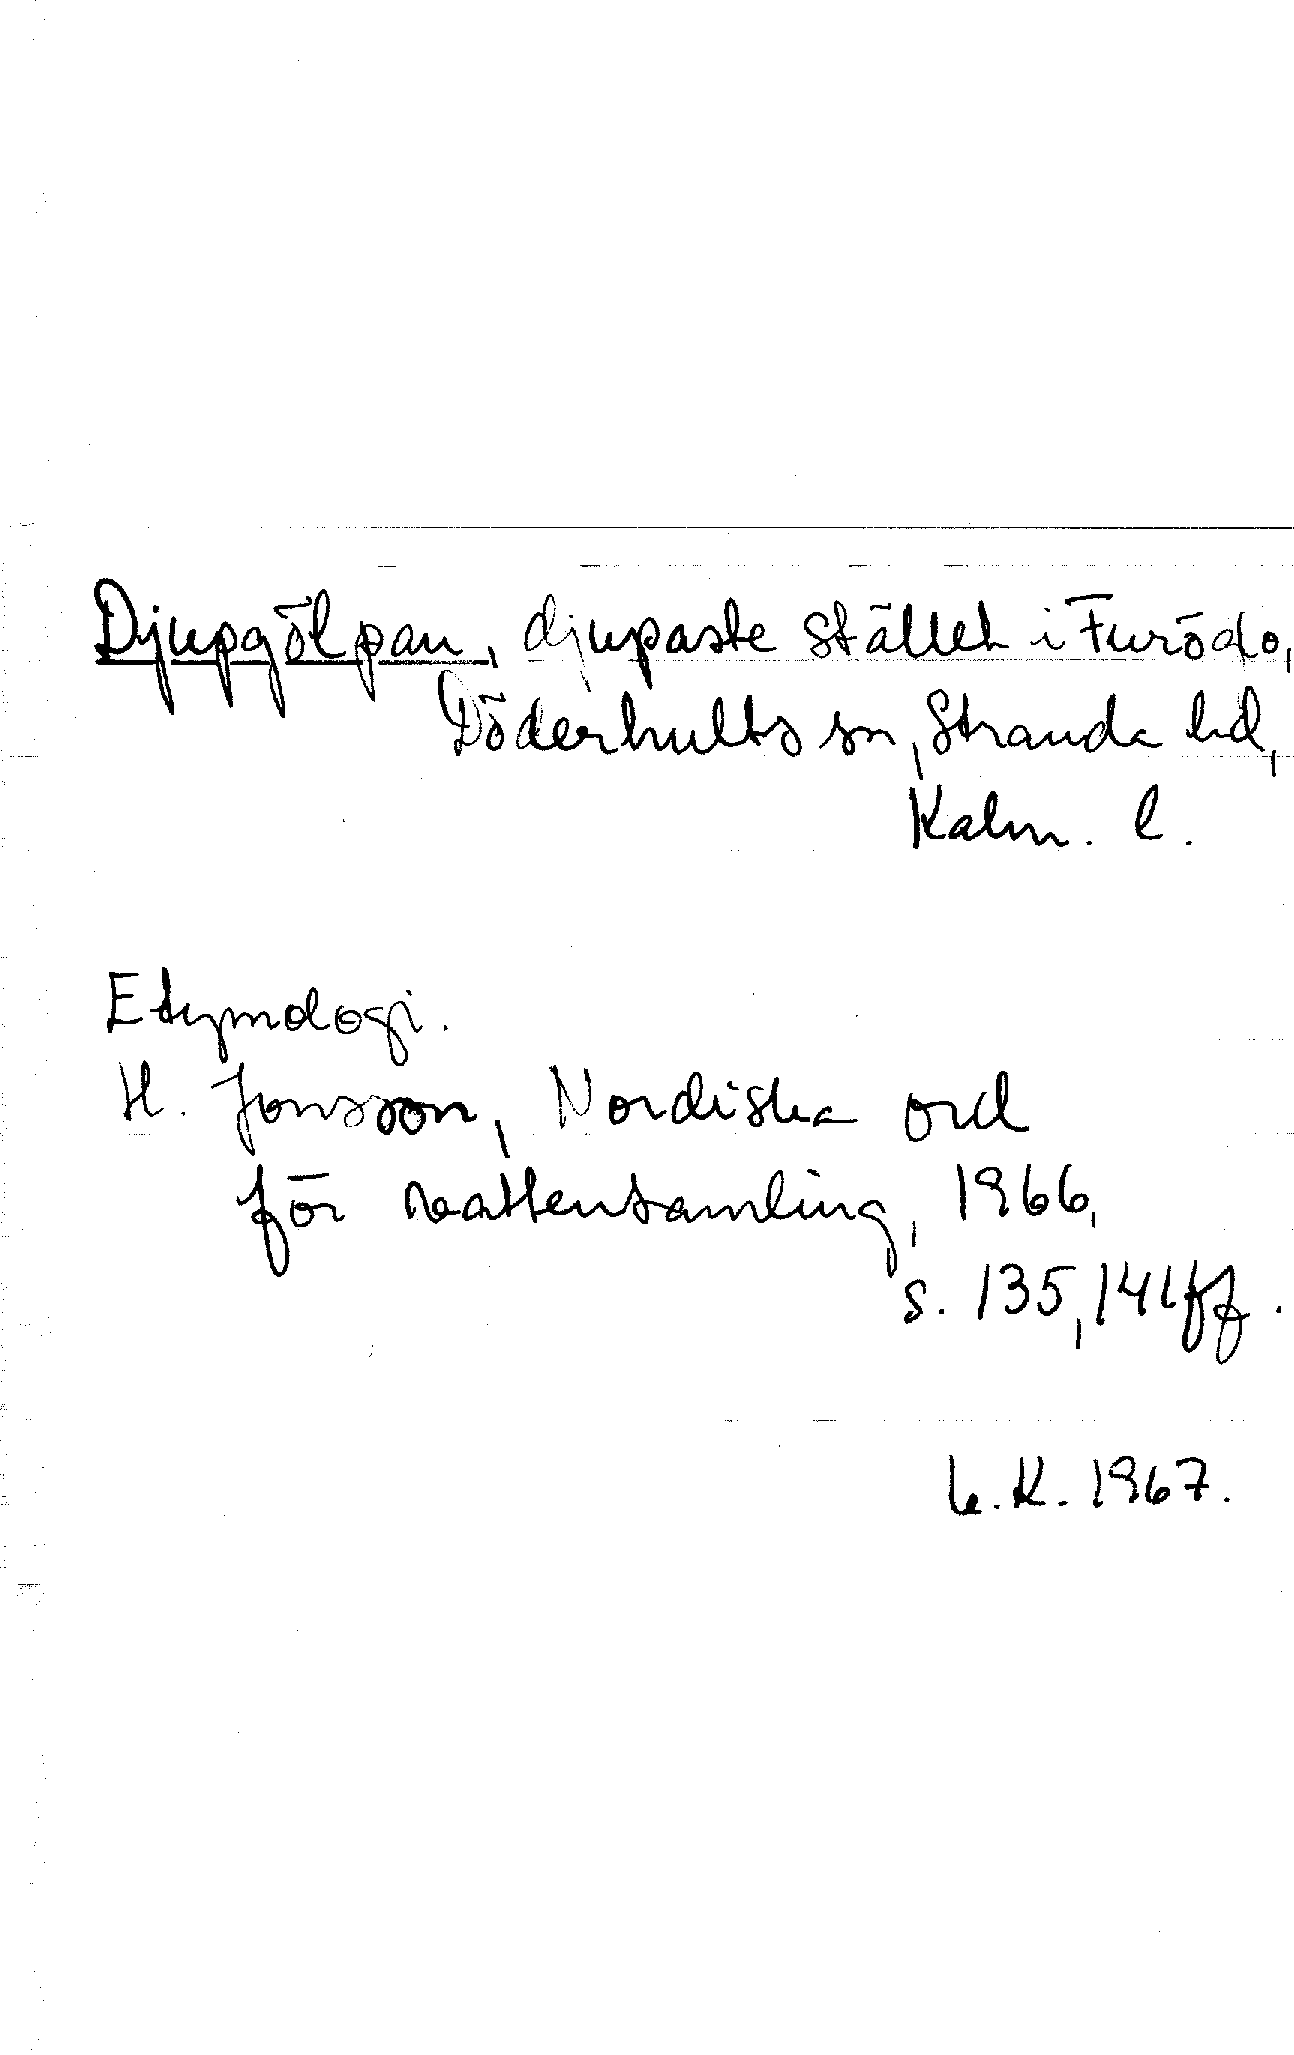 Djupgölpan, djupaste stället i Furödo,
Döderhults sn, Stranda hd,
Kalm. l.
Etymologi.
H. Jonsson, Nordiska ord
för vattensamling, 1966,
s. 135, 141ff.
K. 1967.